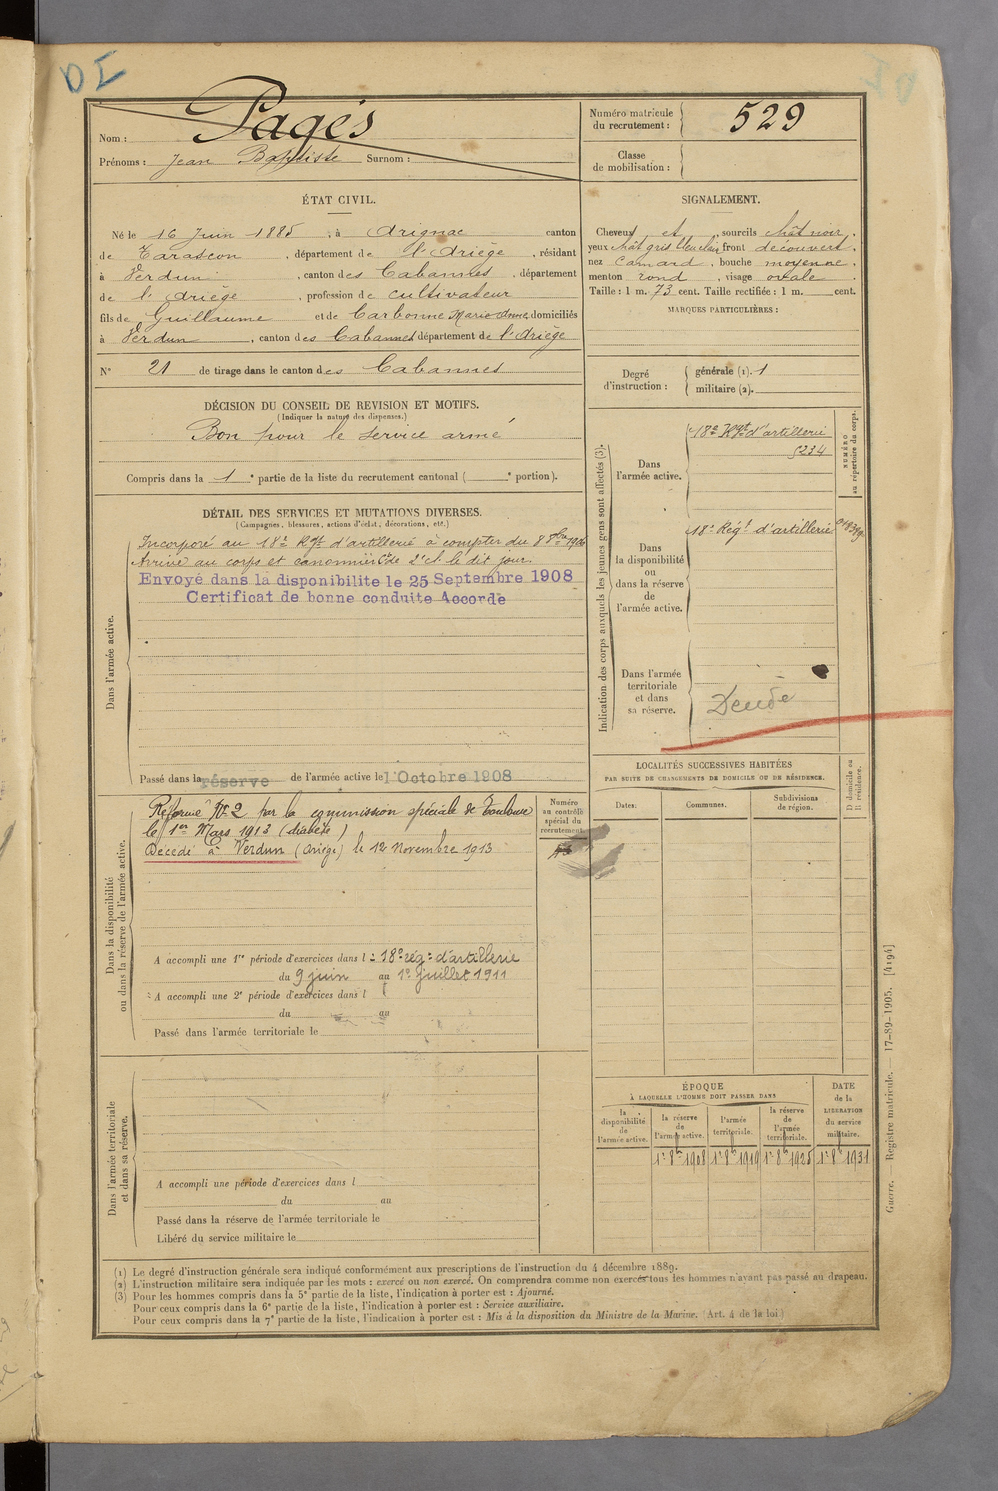 DI
Nom : Pagès
Prénoms : Jean Baptiste Surnom :
Numéro matricule du recrutement : 529
Classe de mobilisation :
ÉTAT CIVIL.
Né le 16 Juin 1885, à Arignac canton
de Tarascon, département de l'Ariège, résidant
à Verdun, canton des Cabannes, département
de l'Ariège, profession de cultivateur
fils de Guillaume et de Carbonne Marie Anne domiciliés
à Verdun, canton des Cabannes département de l'Ariège
N° 21 de tirage dans le canton des Cabannes
SIGNALEMENT.
Cheveux et, sourcils chât noir,
yeux chât gris bleu clair front découvert,
nez Camard, bouche moyenne,
menton rond, visage ovale
Taille : 1 m. 73 cent. Taille rectifiée : 1 m. cent.
MARQUES PARTICULIÈRES :
Degré d'instruction : générale (1). 1
militaire (2).
DÉCISION DU CONSEIL DE REVISION ET MOTIFS.
(Indiquer la nature des dispenses.)
Bon pour le service armé
Compris dans la 1e partie de la liste du recrutement cantonal ( e portion).
DÉTAIL DES SERVICES ET MUTATIONS DIVERSES.
(Campagnes, blessures, actions d'éclat, décorations, etc.)
Dans l'armée active.
Incorporé au 18e Rgt d'artillerie à compter du 8 8bre 1906
Arrivé au corps et canonnier Cte de 2e cl le dit jour.
Envoyé dans la disponibilite le 25 Septembre 1908
Certificat de bonne conduite Accorde
Passé dans la réserve de l'armée active le 1 Octobre 1908
Indication des corps auxquels les jeunes gens sont affectés (3).
NUMÉRO au répertoire du corps.
Dans l'armée active.
18e Rgt d'artillerie
5234
Dans la disponibilité ou dans la réserve de l'armée active.
18e Régt d'artillerie
Dans l'armée territoriale et dans sa réserve.
Décédé
Dans la disponibilité ou dans la réserve de l'armée active.
Réformé N° 2 par la commission spéciale de Toulouse
le 1er Mars 1913 (diabète)
Décédé à Verdun (Ariège) le 12 Novembre 1913
Numéro au contrôle spécial du recrutement.
A accompli une 1re période d'exercices dans l e 18e rég: d'artillerie
du 9 juin au 1er juillet 1911
A accompli une 2e période d'exercices dans l
du au
Passé dans l'armée territoriale le
LOCALITÉS SUCCESSIVES HABITÉES
PAR SUITE DE CHANGEMENTS DE DOMICILE OU DE RÉSIDENCE.
Dates. Communes. Subdivisions de région. D. domicile ou R. résidence.
Dans l'armée territoriale et dans sa réserve.
A accompli une période d'exercices dans l
du au
Passé dans la réserve de l'armée territoriale le
Libéré du service militaire le
ÉPOQUE
À LAQUELLE L'HOMME DOIT PASSER DANS
DATE de la LIBÉRATION du service militaire.
la disponibilité de l'armée active. la réserve de l'armée active. l'armée territoriale. la réserve de l'armée territoriale.
1er 8bre 1908 1er 8bre 1919 1er 8bre 1925 1er 8bre 1931
Guerre. Registre matricule. — 17-89-1905. [4194]
(1) Le degré d'instruction générale sera indiqué conformément aux prescriptions de l'instruction du 4 décembre 1889.
(2) L'instruction militaire sera indiquée par les mots : exercé ou non exercé. On comprendra comme non exercés tous les hommes n'ayant pas passé au drapeau.
(3) Pour les hommes compris dans la 5e partie de la liste, l'indication à porter est : Ajourné.
Pour ceux compris dans la 6e partie de la liste, l'indication à porter est : Service auxiliaire.
Pour ceux compris dans la 7e partie de la liste, l'indication à porter est : Mis à la disposition du Ministre de la Marine. (Art. 4 de la loi)